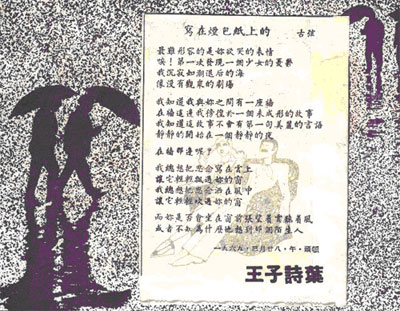 寫在煙包紙上的　古弦
最難形容的是妳欲哭的表情
唉！第一次發現一個少女的憂鬱
我沉寂如潮退后的海
像沒有觀眾的劇場
我知道我與妳之間有一座牆
在牆這邊我徬徨於一個未成形的故事
我知道這故事不會有第一句美麗的言語
靜靜的開始在一個靜靜的夜
在牆那邊呢？
我總想把思念寫在雲上
讓它輕輕飄過妳的窗
我總想把思念洒在風中
讓它輕輕吹過妳的窗
而妳是否會坐在窗前張望着雲聽着風
或者不知為什麼也想到那個陌生人
一九六九・三月廿八・午・頭頓
王子詩葉